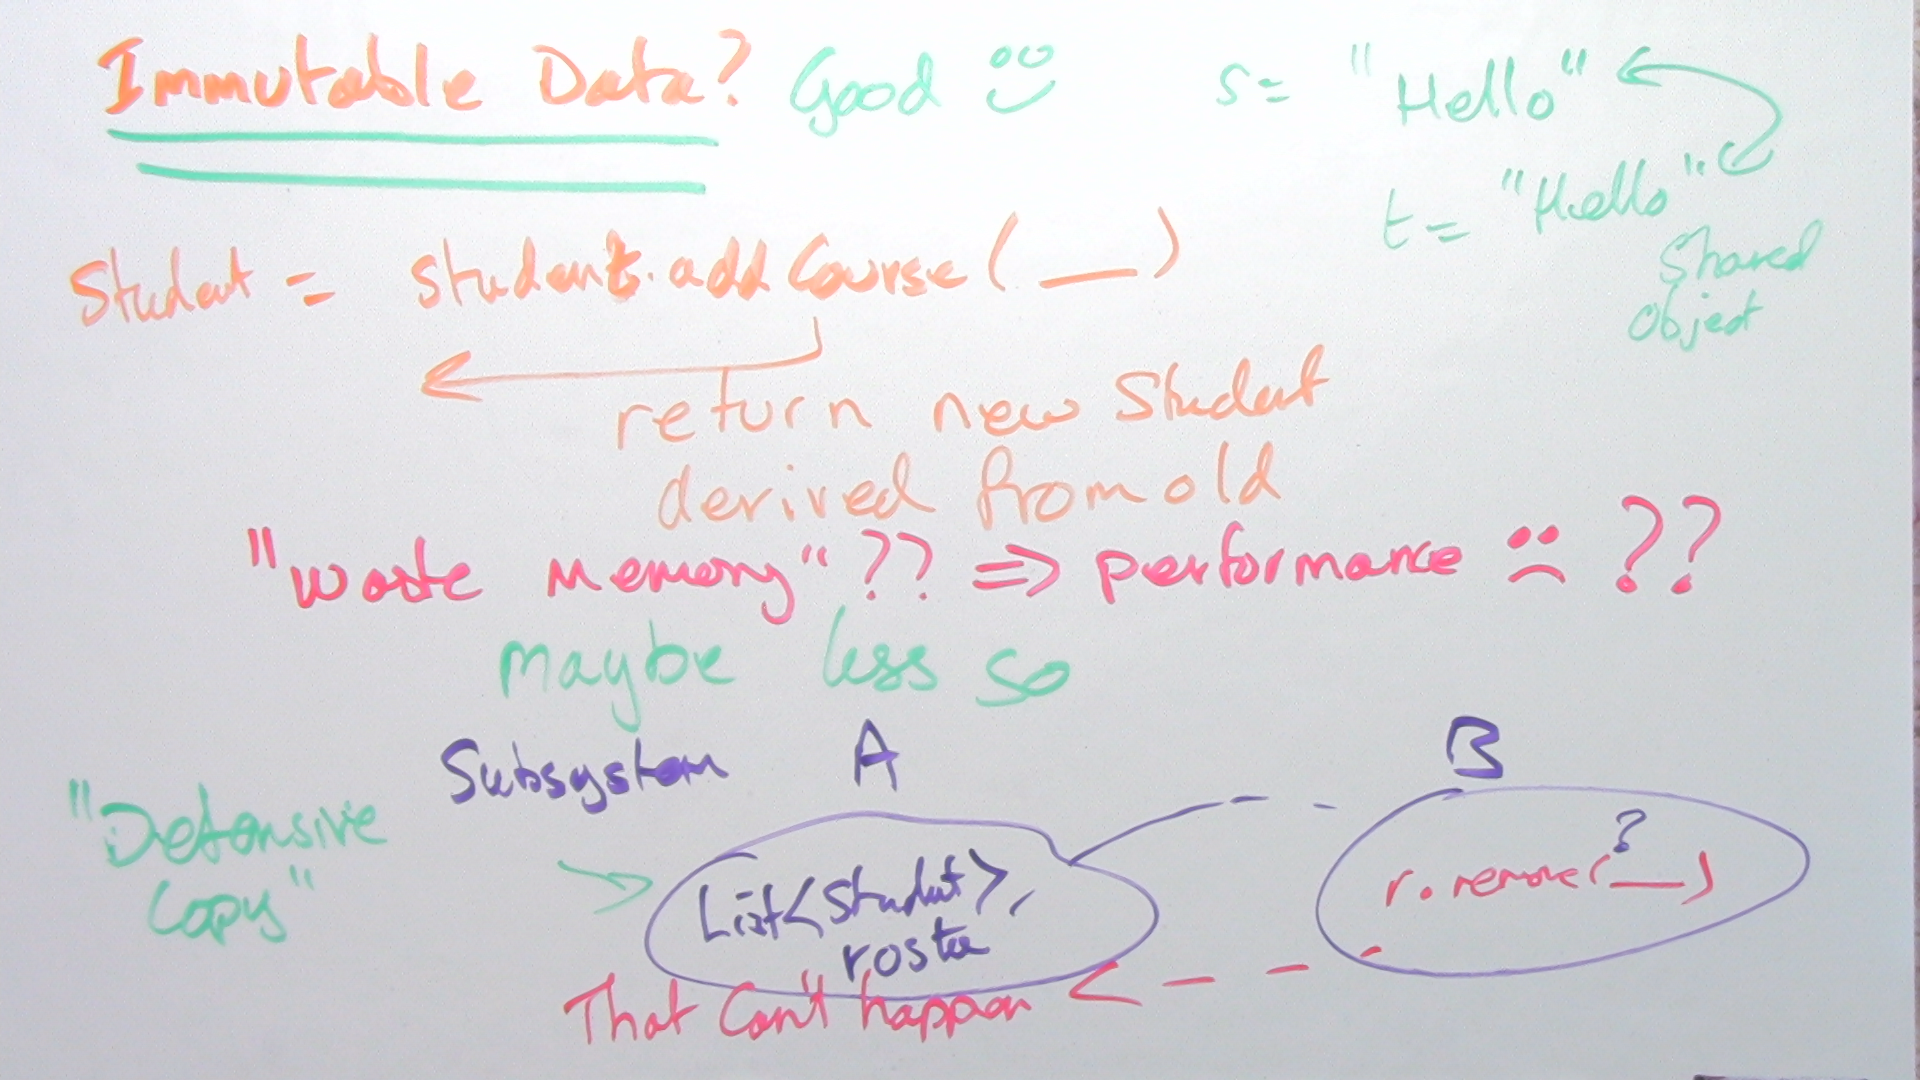 Immutable Data? Good
s = "Hello"
t = "Hello"
Shared
Object
Student = student.addCourse(__)
return new Student
derived from old
"waste memory"?? => performance ??
maybe less so
Subsystem A
B
"Defensive
Copy"
List<Student>
roster
?
r.remove(__)
That can't happen